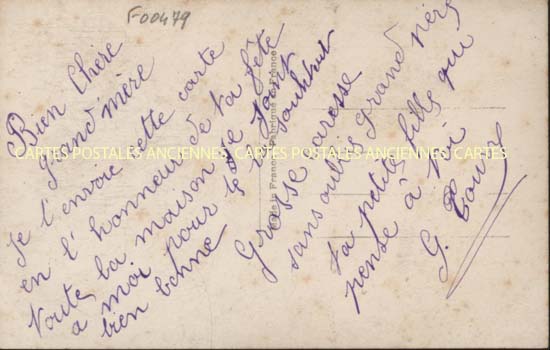 F00479
Bien Chère
grand mère
Je t'envoie cette carte
en l'honneur de ta fête
toute la maison se joint
a moi pour te la souhait
bien bonne
Grosse caresse
sans oublis grand père
ta petite fille qui
pense à toi
G.
CARTES POSTALES ANCIENNES CARTES POSTALES ANCIENNES CARTES POSTALES ANCIENNES